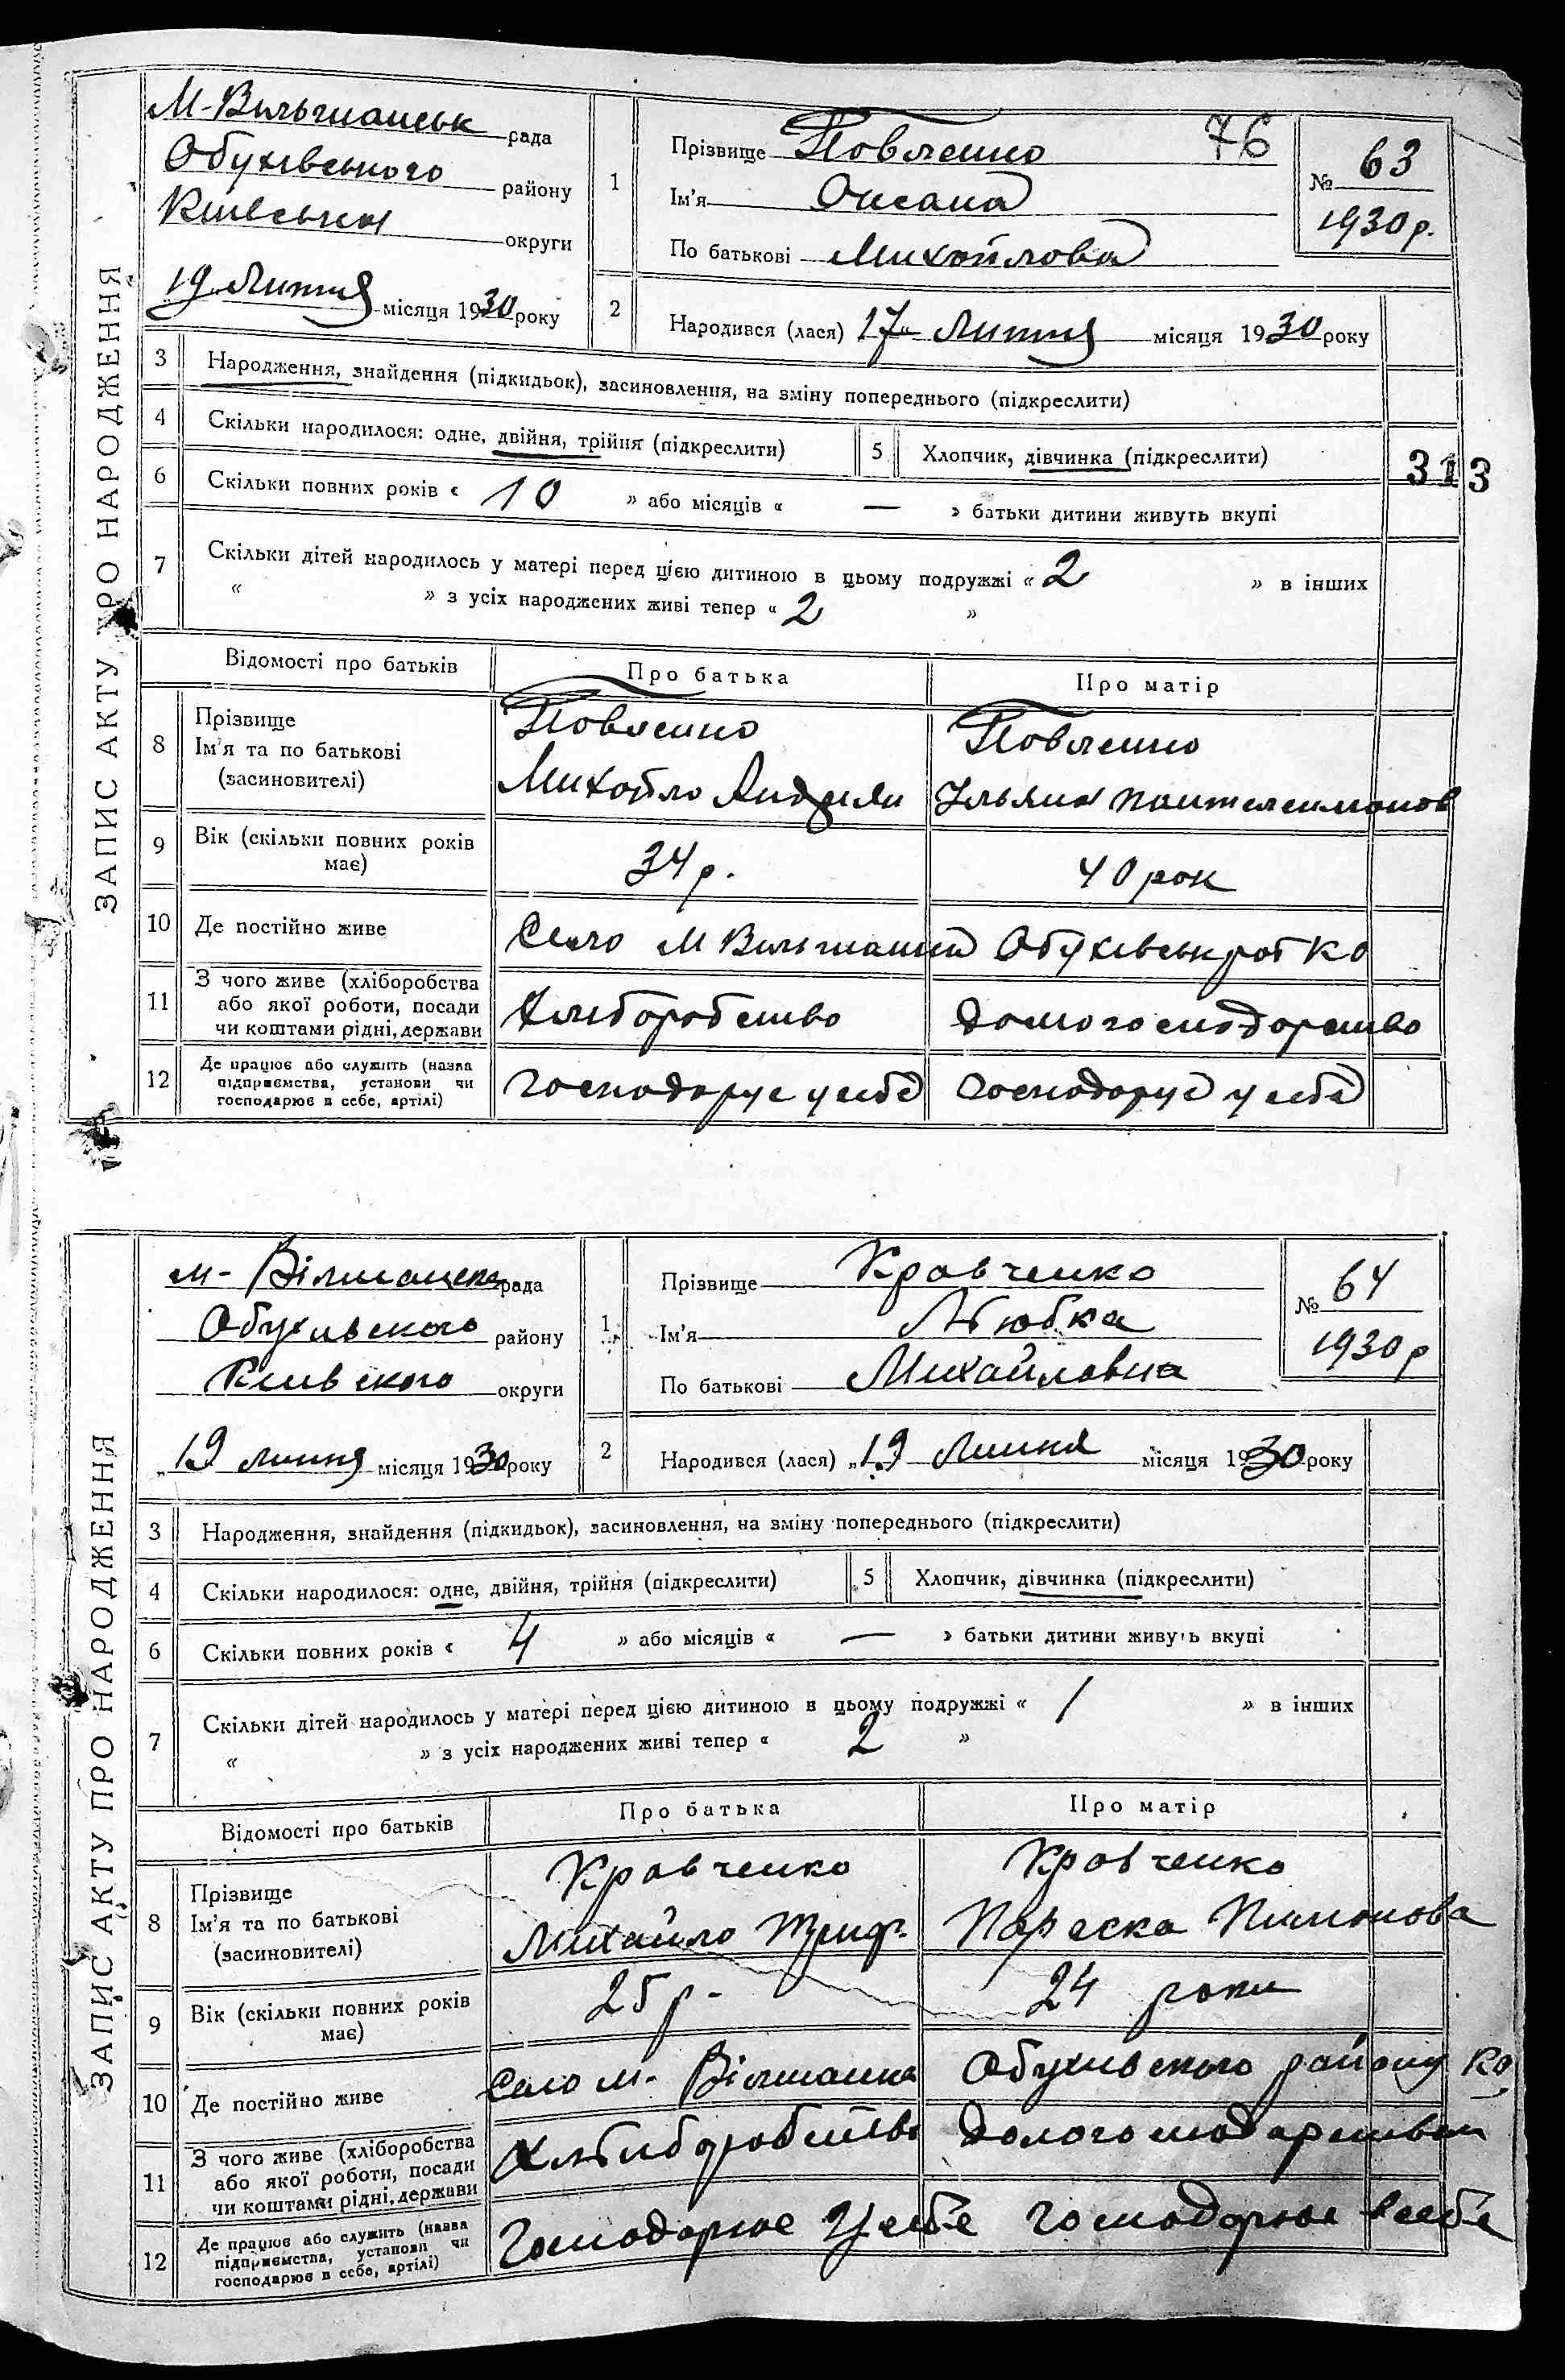 ЗАПИС АКТУ ПРО НАРОДЖЕННЯ
М-Вильшанськ рада
Обухівського району
Київської округи
19 Липня місяця 1930 року
1
Прізвище Повленко
76
Ім'я Оксана
По батькові Михойлова
№ 63
1930 р.
2
Народився (лася) 17 Липня місяця 1930 року
3 Народження, знайдення (підкидьок), засиновлення, на зміну попереднього (підкреслити)
4 Скільки народилося: одне, двійня, трійня (підкреслити) 5 Хлопчик, дівчинка (підкреслити)
313
6 Скільки повних років « 10 » або місяців « — » батьки дитини живуть вкупі
7 Скільки дітей народилось у матері перед цією дитиною в цьому подружжі « 2 » в інших
« » з усіх народжених живі тепер « 2 »
Відомості про батьків Про батька Про матір
8 Прізвище
Ім'я та по батькові
(засиновителі)
Повленко
Михойло Андріян
Повленко
Ульяна Пантелеимонов
9 Вік (скільки повних років має)
34 р.
40 рок
10 Де постійно живе
Село М Вильшанка Обухівськ рот КО
11 З чого живе (хліборобства
або якої роботи, посади
чи коштами рідні, держави
Хлиборобство
домогосподорство
12 Де працює або служить (назва
підприємства, установи чи
господарює в себе, артілі)
Господорує у себе
Господорує у себе
ЗАПИС АКТУ ПРО НАРОДЖЕННЯ
м- Вілшанска рада
Обухивского району
Киівского округи
„19 липня місяця 1930 року
1
Прізвище Кравченко
Ім'я Любка
По батькові Михайловна
№ 64
1930 р
2
Народився (лася) „19 Липня місяця 1930 року
3 Народження, знайдення (підкидьок), засиновлення, на зміну попереднього (підкреслити)
4 Скільки народилося: одне, двійня, трійня (підкреслити) 5 Хлопчик, дівчинка (підкреслити)
6 Скільки повних років « 4 » або місяців « — » батьки дитини живуть вкупі
7 Скільки дітей народилось у матері перед цією дитиною в цьому подружжі « 1 » в інших
« » з усіх народжених живі тепер « 2 »
Відомості про батьків Про батька Про матір
8 Прізвище
Ім'я та по батькові
(засиновителі)
Кравченко
Михайло Триф.
Кравченко
Параска Пимонова
9 Вік (скільки повних років має)
25 р.
24 роки
10 Де постійно живе
Село м. Вілшанка Обухивского району КО
11 З чого живе (хліборобства
або якої роботи, посади
чи коштами рідні, держави
Хлиборобство
12 Де працює або служить (назва
підприємства, установи чи
господарює в себе, артілі)
Господарює у себе
господарює в себе